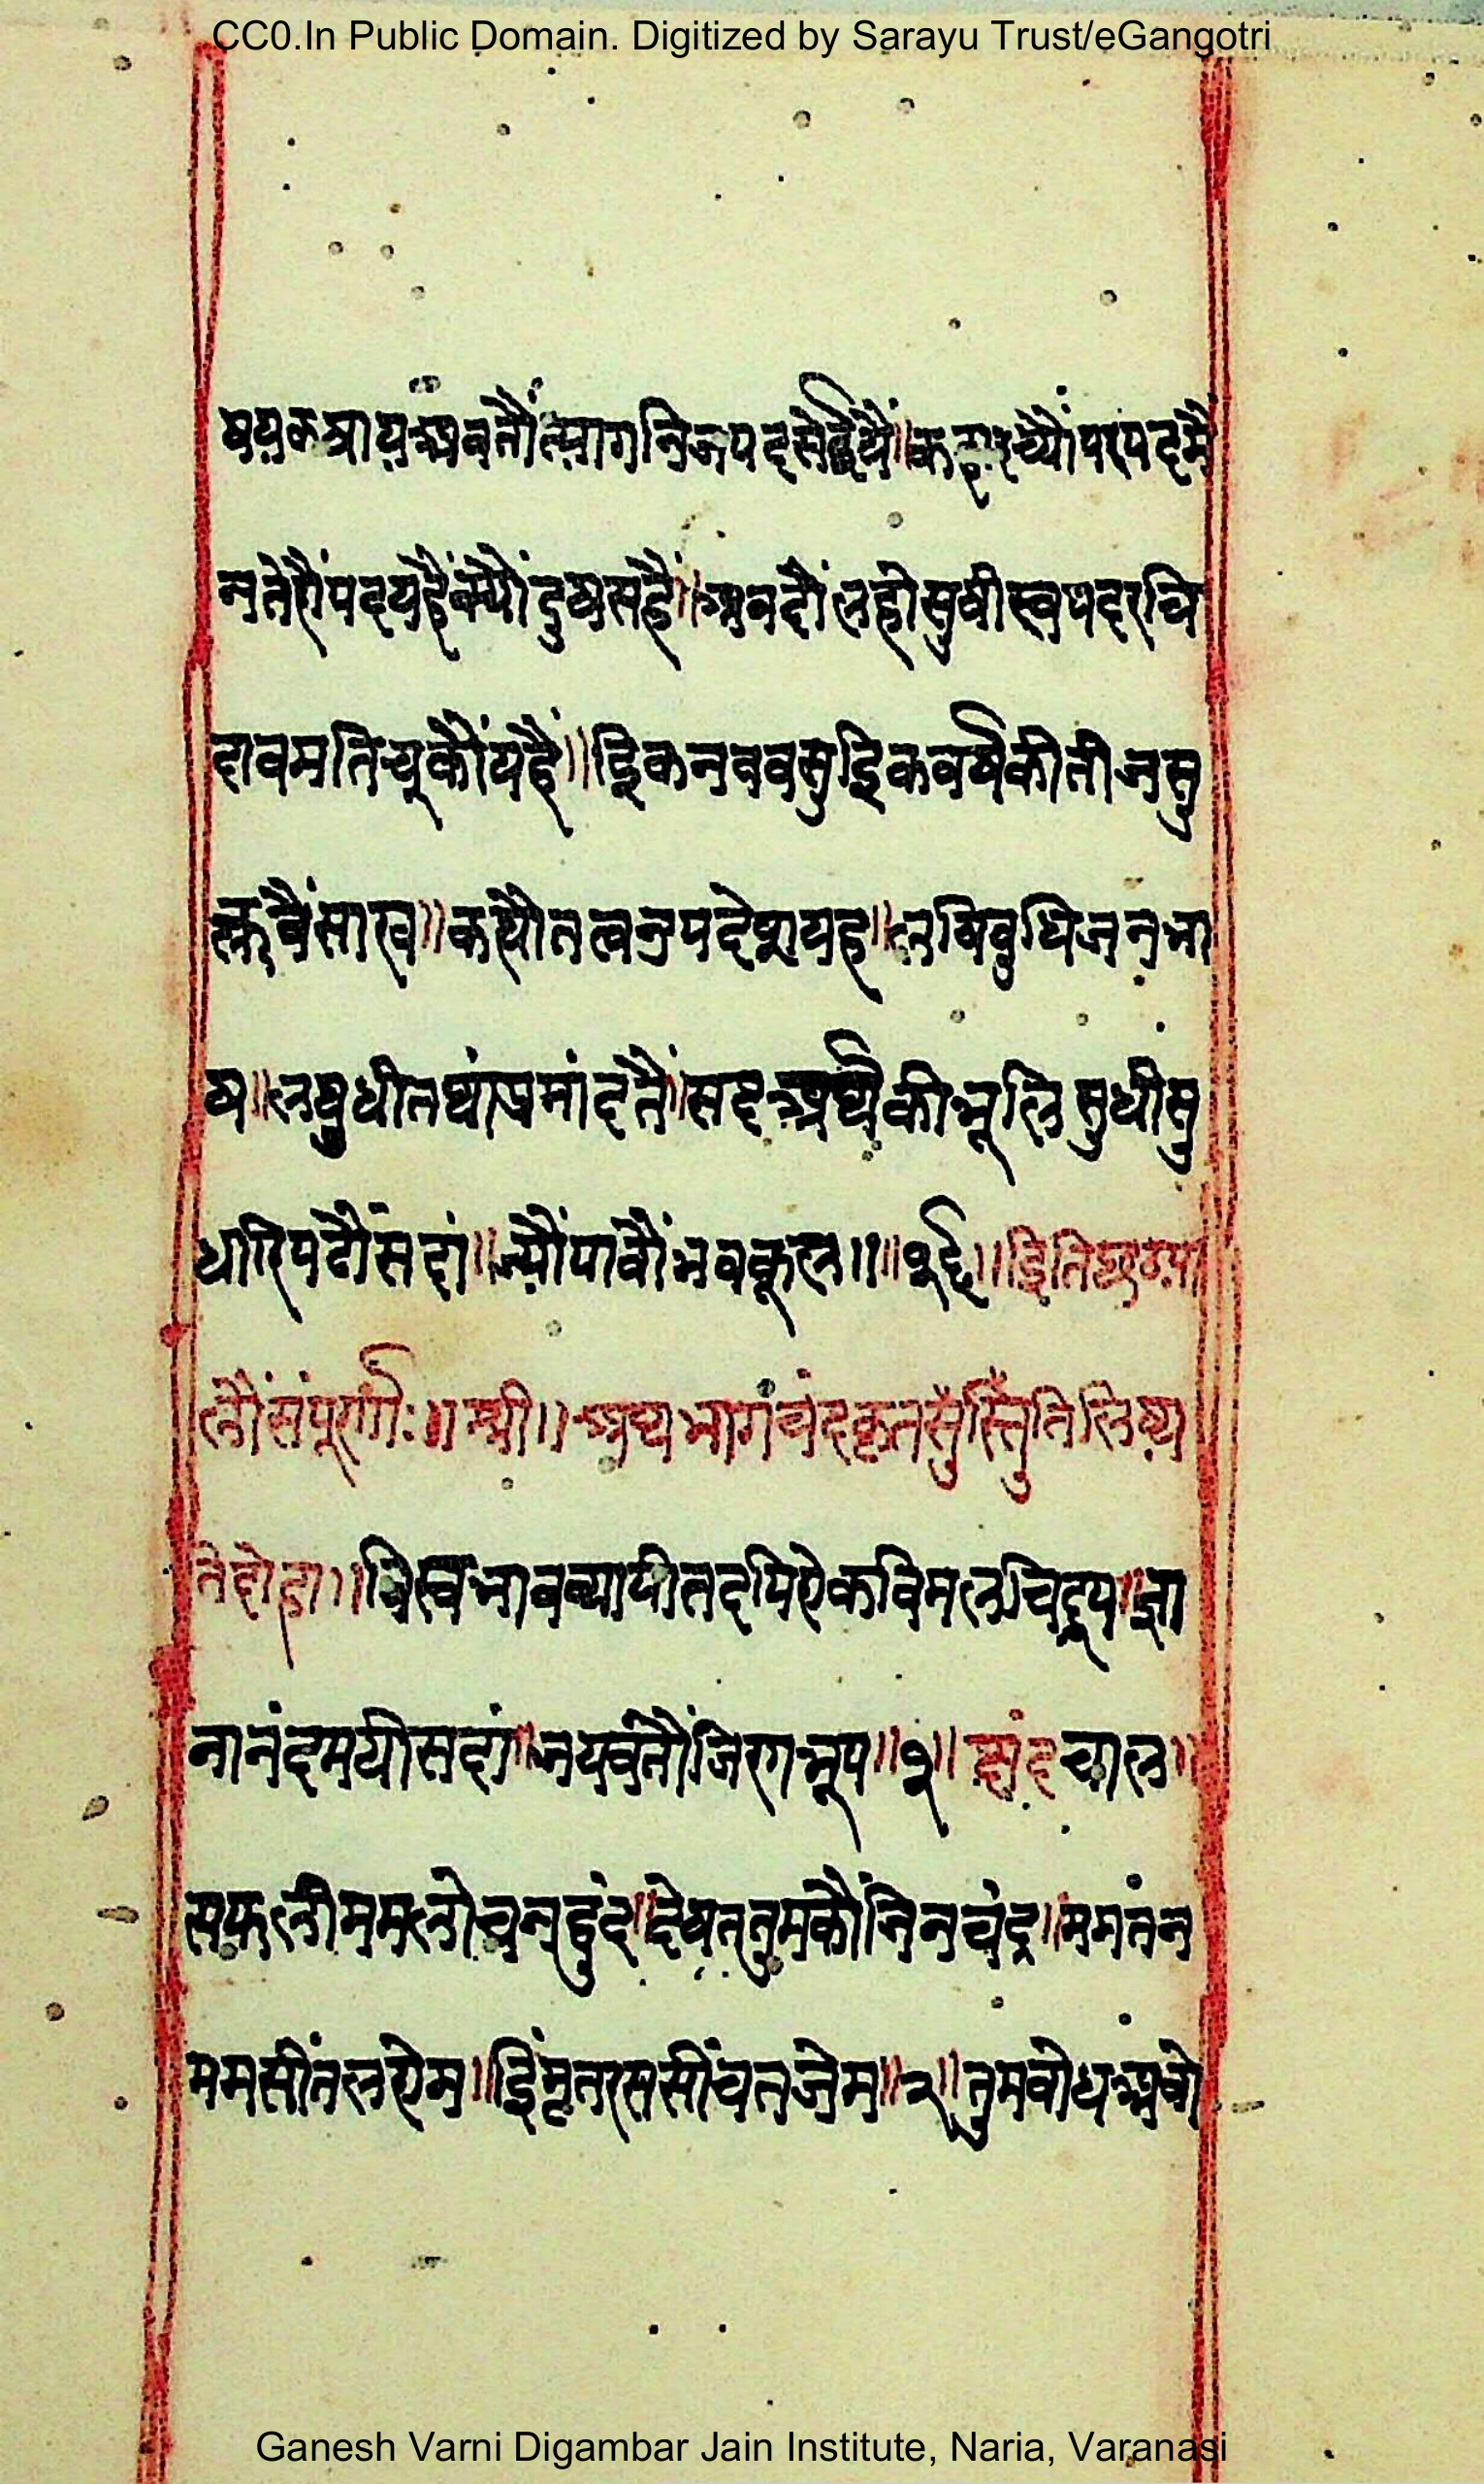 CC0.In Public Domain. Digitized by Sarayu Trust/eGangotri
षयकषायअबतौंत्यागनिजपदसेईयैं॥क रच्यौंपरपदमैं
नतेरौंपदयहैंक्यौंदुषसहैं॥अबदौंलहोसुषीस्वपदरचि
दावमतिचूकौंयहैं॥इकनववसुइकवर्षकीतीजसु
क्लबैंसाख॥कह्यौतत्वउपदेशयह॥लषिबुधिजनभा
ष॥लघुधीतथांप्रमांदतैं॥सद्दअर्थकीभूलिसुधीसु
धारिपढौंसदां॥ज्यौंपावौंभवकूल॥॥१६॥इतिछहढा
लौंसंपूर्णः॥श्री॥अथभागचंदकृतसुस्तुतिलिष्य
तेदोहा॥विस्वभावव्यापीतदपिऐकविमलचिद्रूप॥ज्ञा
नानंदमयीसदां॥जयवंतौंजिनभूप॥१॥छंदचाल॥
सफलीममलोचनद्वंद॥देषततुमकौंजिनचंद॥ममतन
ममसींतलऐम॥इंमृतरससींचतजेम॥२॥तुमबोधअबो
Ganesh Varni Digambar Jain Institute, Naria, Varanasi